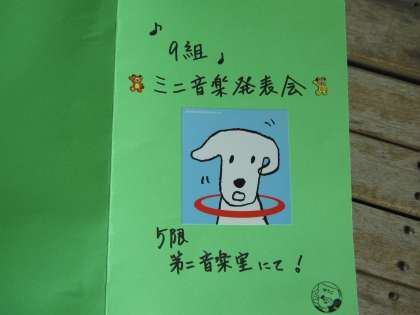 9組
ミニ音楽発表会
5限
第二音楽室にて!